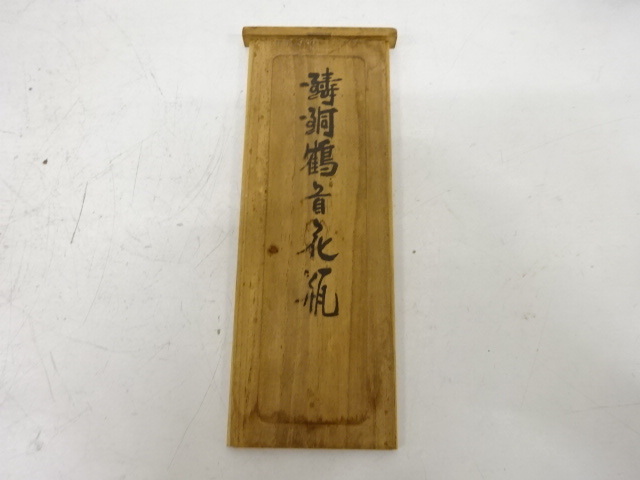 鋳銅鶴首花瓶